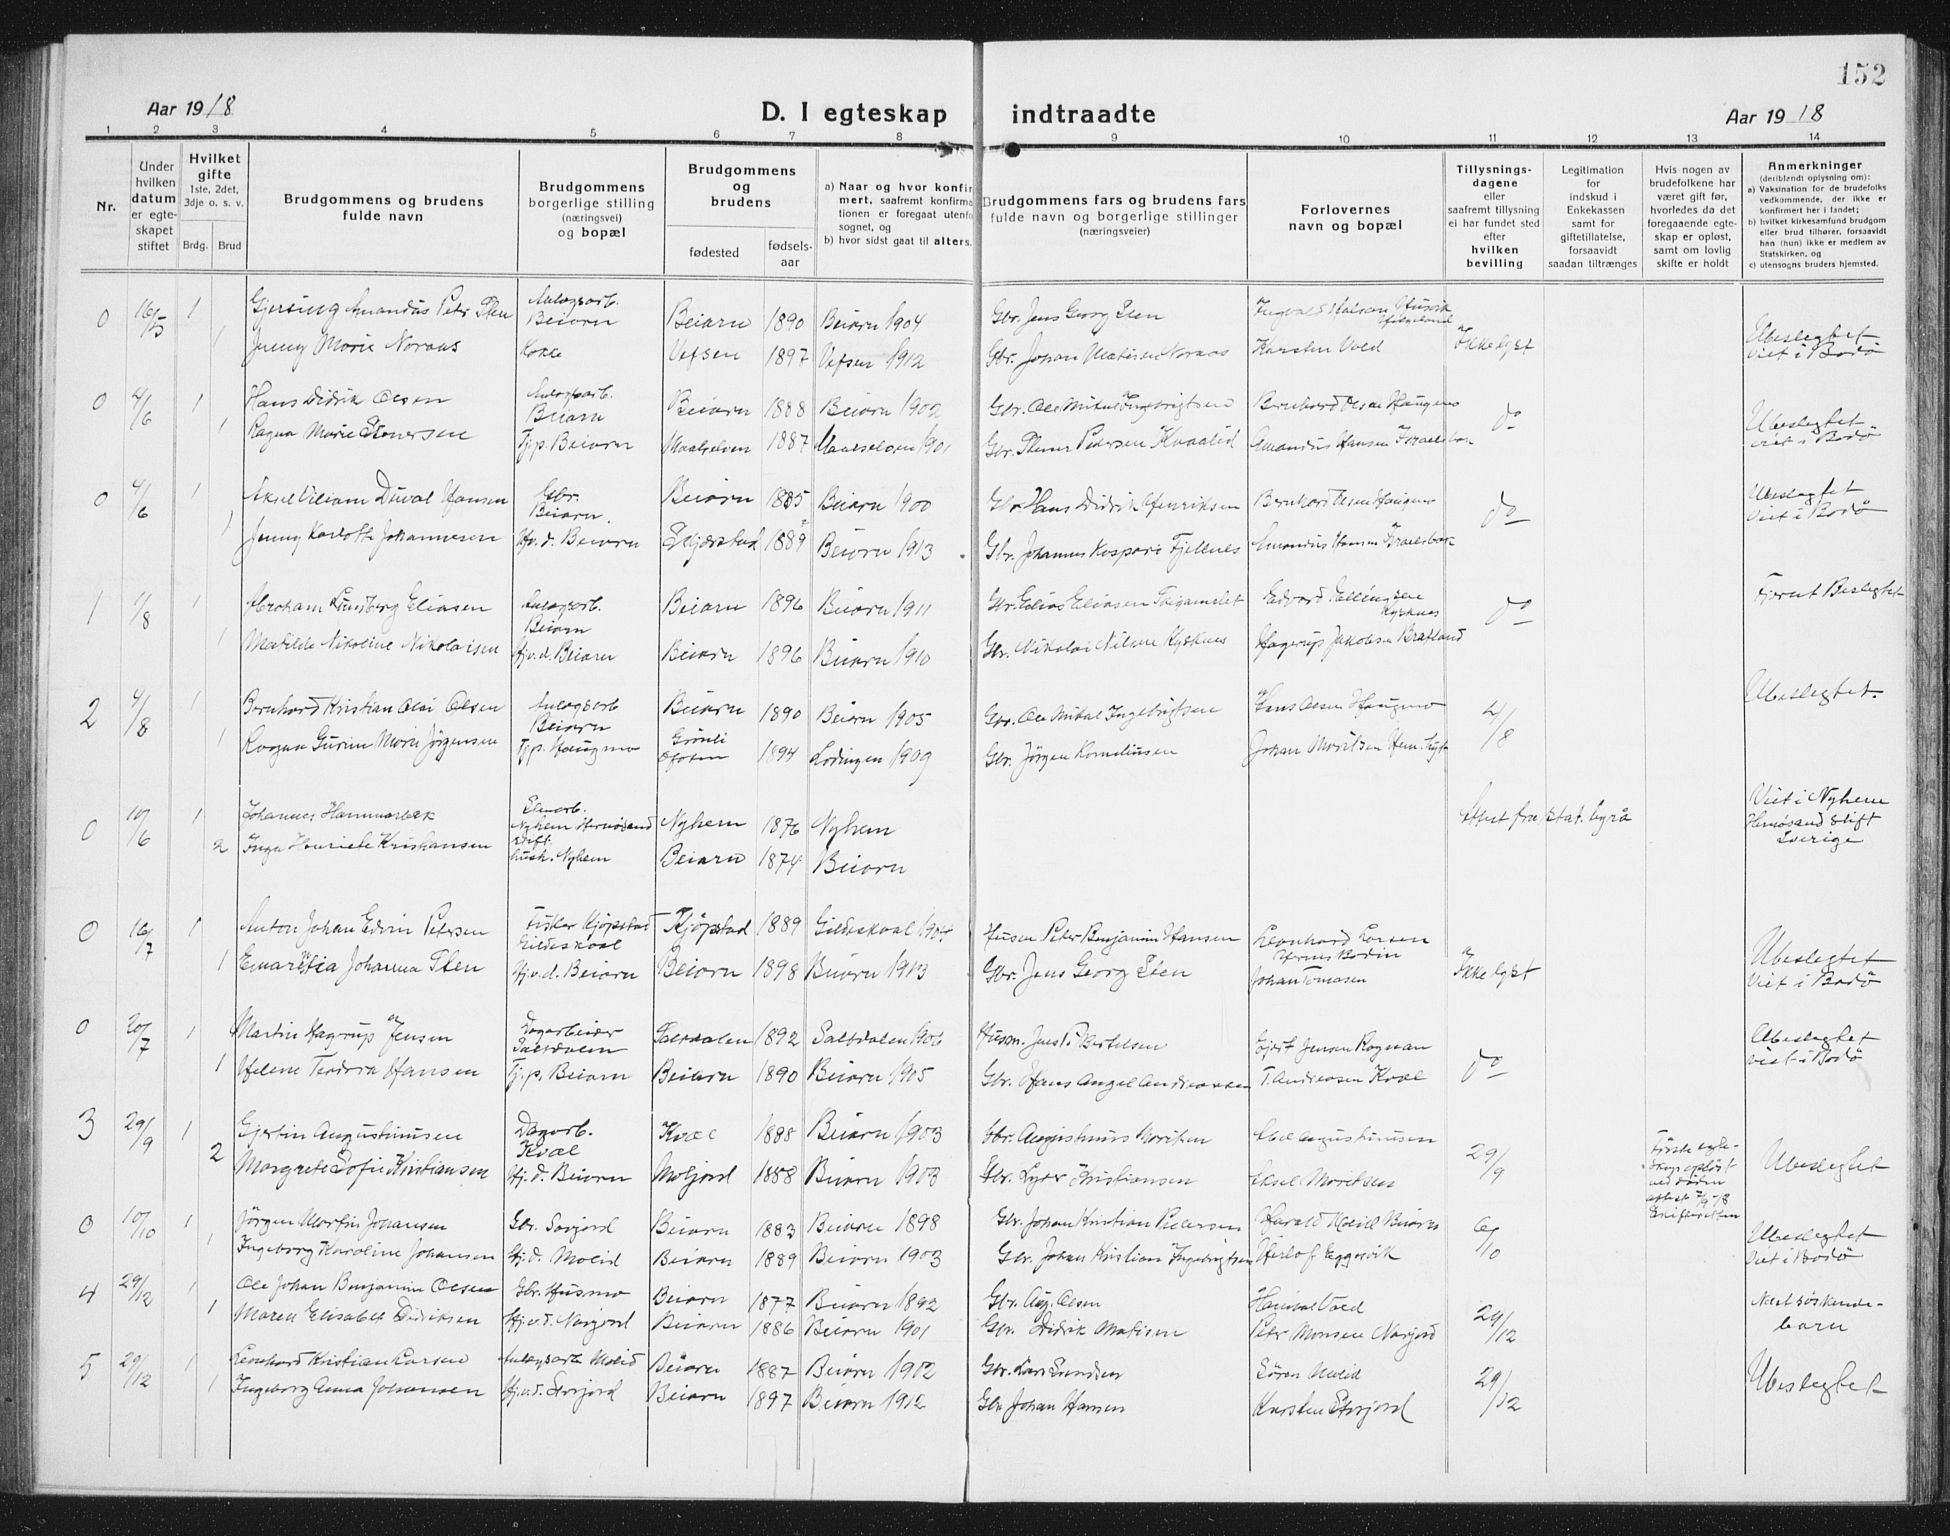 152
Aar 1918 D. I egteskap indtraadte Aar 1918
1 2 3 4 5 6 7 8 9 10 11 12 13 14
Nr.
Under hvilken datum er egteskapet stiftet
Hvilket gifte 1ste, 2det, 3dje o. s. v.
Brdg. Brud
Brudgommens og brudens fulde navn
Brudgommens borgerlige stilling (næringsvei) og bopæl
Brudgommens og brudens
fødested fødsels-aar
a) Naar og hvor konfir
mert, saafremt konfirma
tionen er foregaat utenfo
sognet, og
b) hvor sidst gaat til alters.
Brudgommens fars og brudens fars
fulde navn og borgerlige stillinger
(næringsveier)
Forlovernes
navn og bopæl
Tillysnings-
dagene
eller
saafremt tillysning
ei har fundet sted
efter
hvilken
bevilling
Legitimation
for
indskud i
Enkekassen
samt for
giftetillatelse,
forsaavidt
saadan tiltrænges
Hvis nogen av
brudefolkene har
været gift før,
hvorledes da det
foregaaende egte-
skap er opløst,
samt om lovlig
skifte er holdt
Anmerkninger
(deriblandt oplysning om):
a) Vaksination for de brudefolks
vedkommende, der ikke er
konfirmert her i landet;
b) hvilket kirkesamfund brudgom
eller brud tilhører, forsaavidt
han (hun) ikke er medlem av
Statskirken, og
c) utensogns bruders hjemsted.
0 16/5 1 Gjersing Amandus Petr Sten Anlægsarb. Beiarn Beiarn 1890 Beiarn 1904 Gbr. Jens Georg Sten Ubeslegtet
1 Jenny Marie Noraas Kokke Vefsen 1897 Vefsen 1912 Gbr. Johan Matisen Noraas Karsten Vold Ikke lyst Viet i Bodø
0 4/6 1 Hans Didrik Olsen Anlægsarb. Beiarn Beiarn 1888 Beiarn 1902 Gbr. Ole Mikal Ingebrigtsen Bernhard Olsen Haugmo do Ubeslegtet
1 Ragna Marie Stenersen Tj.p. Beiarn Maalselven 1887 Maalselven 1901 Gbr. Stener Pedersen Kvaalid Amandus Hansen Israelsbak viet i Bodø
0 4/6 1 Aksel Viliam Duval Hansen Gbr. Beiarn. Beiarn 1885 Beiarn 1900 Gbr. Hans Didrik Henriksen Bernhard Olsen Haugmo do Ubeslegtet
1 Jenny Karlotte Johannesen Hj.v.d. Beiarn Skjerstad 1889 Beiarn 1913 Gbr. Johannes Kaspari Fjellnes Amandus Hansen Israelsbak Viet i Bodø
1 1/8 1 Abraham Lundberg Eliasen Anlægsarb. Beiarn Beiarn 1896 Beiarn 1911 Gbr. Elias Eliasen Edvard Ellingsen do Fjernt Beslegtet
1 Matilde Nikoline Nikolaisen Hj.v.d. Beiarn Beiarn 1896 Beiarn 1910 Gbr. Nikolai Nilsen Hagerup Jakobsen Bratland
2 4/8 1 Bernhard Kristian Olai Olsen Anlægsarb Beiarn Beiarn 1890 Beiarn 1905 Gbr. Ole Mikal Ingebrigtsen Hans Olsen Haugmo 4/8 Ubeslegtet.
1 Ragna Gurine Marie Jørgensen Tj.p. Haugmo Grønli Ofoten 1894 Lødingen 1909 Gbr. Jørgen Korneliussen Johan Moritsen
0 10/6 1 Johannes Hammarbæk Nyhem Hernøsand Stift. Nyhem 1876 Nyhem Attest fra stat. byrå Viet i Nyhem
2 Inga Henriete Kristiansen hush. Nyhem Beiarn 1874 Beiarn Hernøsand stift
Sverige
0 16/7 1 Anton Johan Edvin Petersen Fisker Kjøpstad Gildeskaal Kjøpstad 1889 Gildeskaal 1904 Husm Peter Benjamin Hansen Leonhard Larsen Ubeslegtet
1 Emarësia Johanna Sten Hj.v.d. Beiarn Beiarn 1898 Beiarn 1913 Gbr. Jens Georg Sten Johan Tomasen Ikke lyst Viet i Bodø
0 20/7 1 Martin Hagrup Jensen Dagarbeider Saltdalen Saltdalen 1892 Saltdalen 1906 Husm. Jens P. Bertelsen Ejert Jensen Rognan do Ubeslegtet
1 Helene Teodora Hansen Tj.p. Beiarn Beiarn 1890 Beiarn 1905 Gbr. Hans Angel Andreassen T. Andreasen Kvæl viet i Bodø
3 29/9 1 Ejertin Augustinusen Dagarb. Kvæl Kvæl 1888 Beiarn 1903 Gbr. Augustinus Moritsen Abel Augustinusen 29/9 Første egte-
2 Margrete Sofie Kristiansen Hj.d. Beiarn Moljord 1888 Beiarn 1903 Gbr. Lyder Kristiansen Aksel Moritsen skap opløst ved døden Ubeslegtet
0 10/10 1 Jørgen Martin Johansen Gbr. Storjord Beiarn 1883 Beiarn 1898 Gbr. Johan Kristian Pedersen Harald Molid Beiarn 6/10 Ubeslegtet
1 Ingeborg Karoline Johansen Hj.d. Molid Beiarn 1889 Beiarn 1903 Gbr. Johan Kristian Ingebrigtsen Herlof Eggesvik Viet i Bodø
4 29/12 1 Ole Johan Benjamin Olsen Gbr. Husmo Beiarn 1877 Beiarn 1892 Gbr. Aug. Olsen Hanibal Vold 29/12 Næstsøskende-
1 Maren Elisabet Didriksen Hj.v.d. Navjord Beiarn 1886 Beiarn 1901 Gbr. Didrik Matisen Peter Monsen Navjord barn
5 29/12 1 Leonhard Kristian Larsen Anlægsarb Molid Beiarn 1887 Beiarn 1902 Gbr. Lars Søren Molid 29/12 Ubeslegtet
1 Ingeborg Anna Johansen Hj.v.d. Storjord Beiarn 1897 Beiarn 1912 Gbr Johan Hansen Karsten Storjord